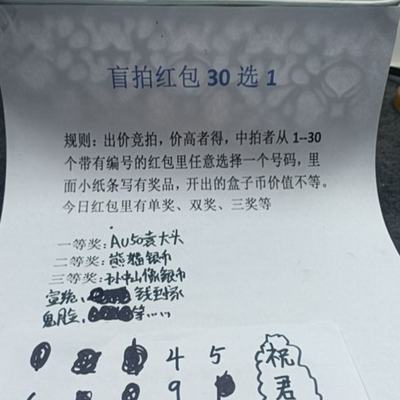 盲拍红包 30 选 1
规则：出价竞拍，价高者得，中拍者从 1--30
个带有编号的红包里任意选择一个号码，里
面小纸条写有奖品，开出的盒子币价值不等。
今日红包里有单奖、双奖、三奖等
一等奖：AU50袁大头
二等奖：熊猫银币
三等奖：孙中山像银币
宣统、钱到家
鬼脸、等……
4 5
9
祝
君